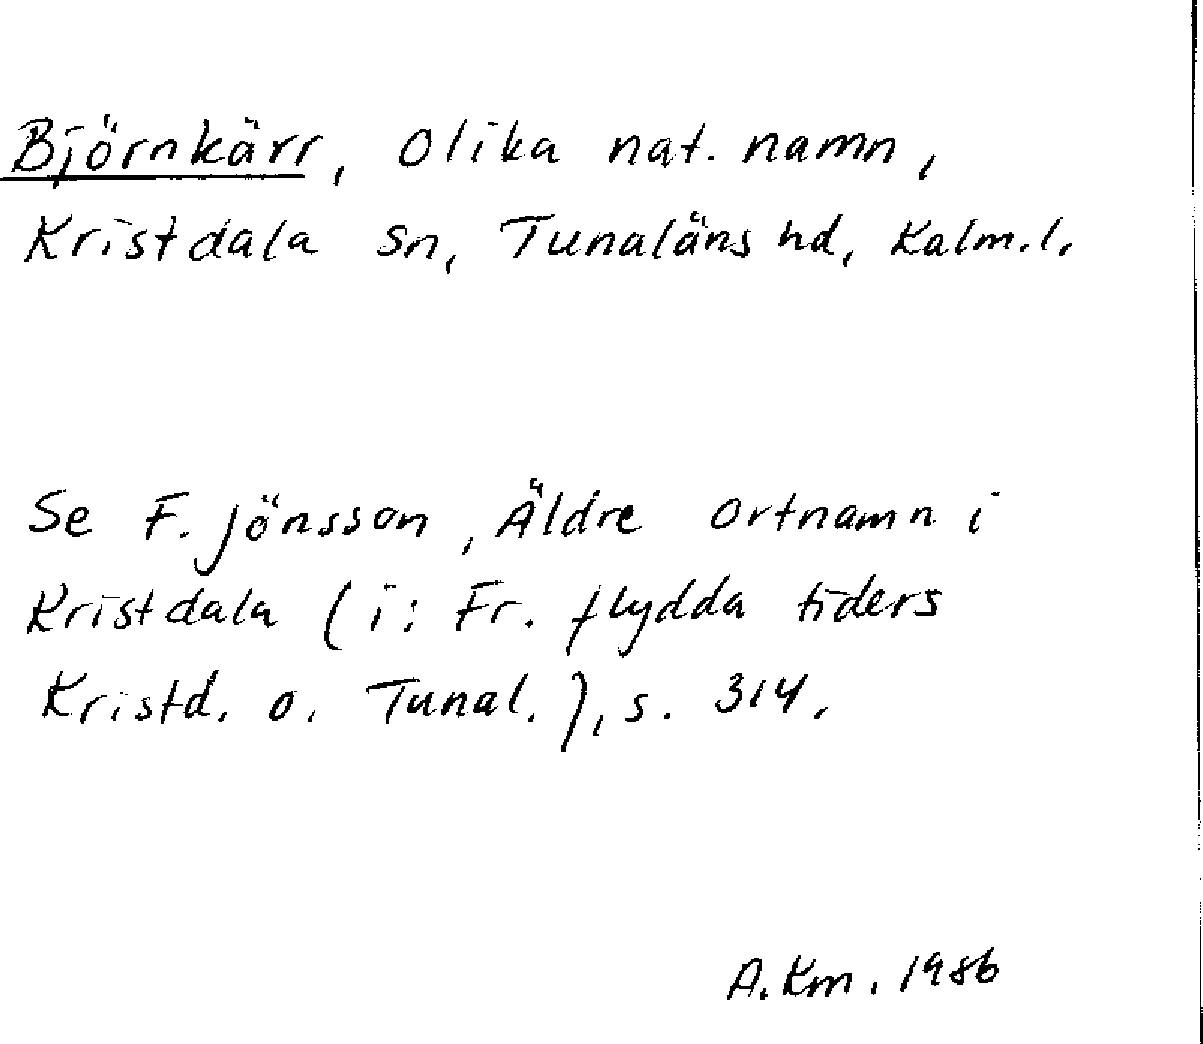 Björnkärr, olika nat. namn,
Kristdala sn, Tunaläns hd, Kalm.l.
Se F. Jönsson, Äldre ortnamn i
Kristdala (i: Fr. flydda tiders
Kristd. o. Tunal.), s. 314.
A. Km. 1986